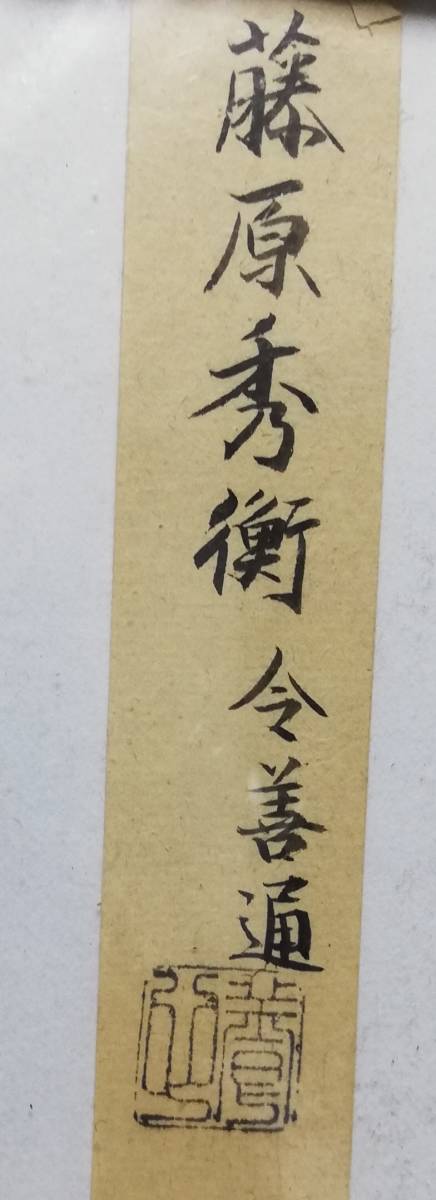 藤原秀衡 令善通